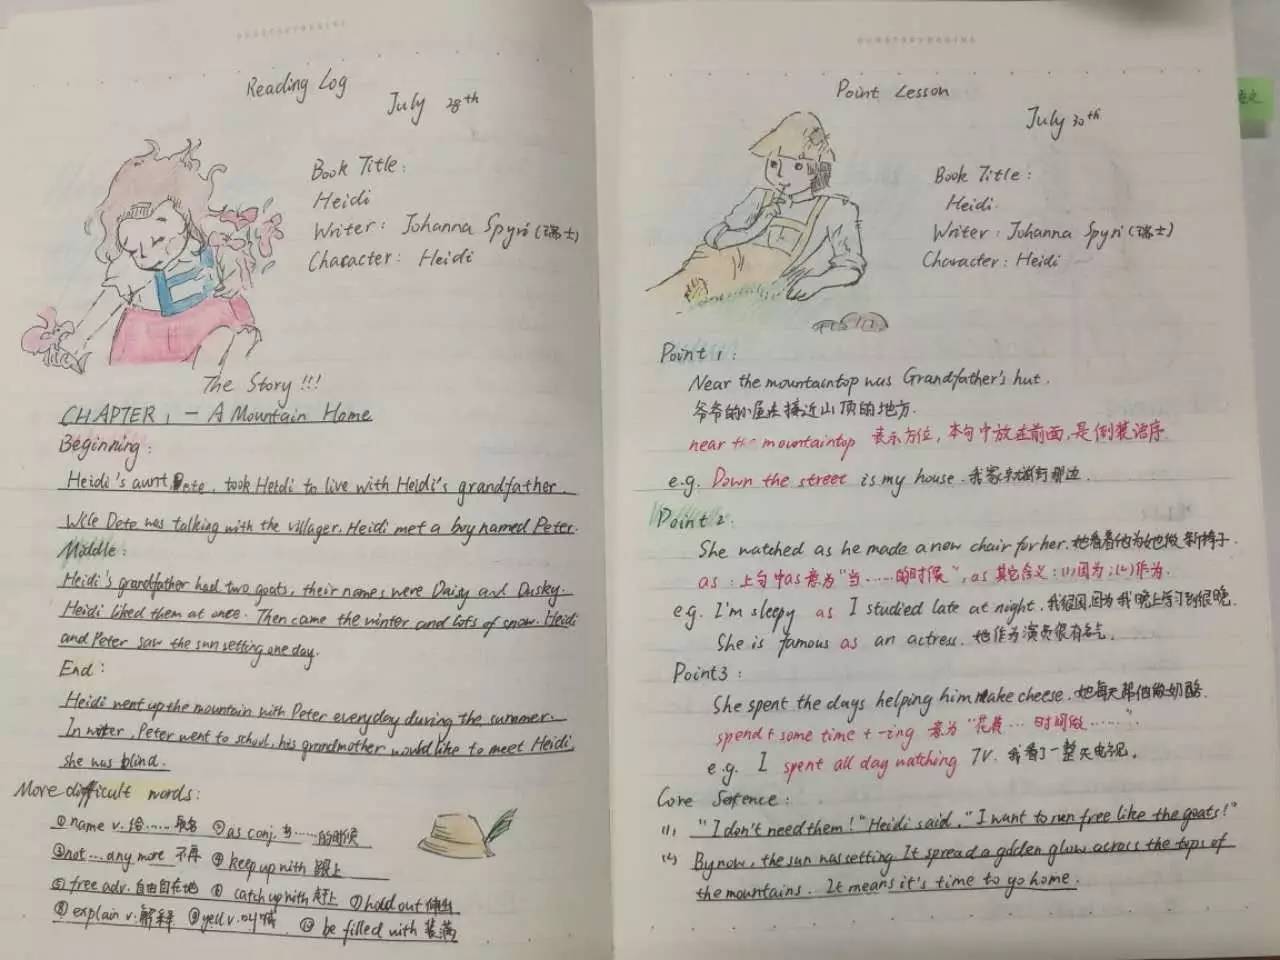 Reading Log
July 28th
Book Title:
Heidi
Writer: Johanna Spyri(瑞士)
Character: Heidi
The Story!!!
CHAPTER 1 - A Mountain Home
Beginning:
Heidi's aunt, Dete, took Heidi to live with Heidi's grandfather.
Wile Dete was talking with the villager, Heidi met a boy named Peter.
Middle:
Heidi's grandfather had two goats, their names were Daisy and Dusky.
Heidi liked them at once. Then came the winter and lots of snow. Heidi
and Peter saw the sun setting one day.
End:
Heidi went up the mountain with Peter everyday during the summer.
In winter, Peter went to school, his grandmother would like to meet Heidi,
she was blind.
More difficult words:
①name v. 给……取名 ②as conj. 当……的时候
③not…any more 不再 ④keep up with 跟上
⑤free adv. 自由自在地 ⑥ catch up with 赶上 ⑦hold out 伸出
⑧explain v. 解释 ⑨yell v. 叫喊 ⑩ be filled with 装满
Point Lesson
July 30th
Book Title:
Heidi.
Writer: Johanna Spyri(瑞士)
Character: Heidi
Point 1:
Near the mountaintop was Grandfather's hut.
爷爷的小屋在接近山顶的地方.
near the mountaintop 表示方位, 本句中放在前面, 是倒装语序
e.g. Down the street is my house. 我家就在街那边.
Point 2:
She watched as he made a new chair for her. 她看着他为她做新椅子.
as: 上句中as意为"当……的时候", as 其它含义: (1)因为; (2)作为.
e.g. I'm sleepy as I studied late at night. 我很困,因为我晚上学习到很晚.
She is famous as an actress. 她作为演员很有名气.
Point3:
She spent the days helping him make cheese. 她每天帮他做奶酪.
spend + some time + -ing 意为"花费…时间做……".
e.g. I spent all day watching TV. 我看了一整天电视.
Core Sentence:
(1) "I don't need them!" Heidi said, "I want to run free like the goats!"
(2) By now, the sun was setting. It spread a golden glow across the tops of
the mountains. It means it's time to go home.